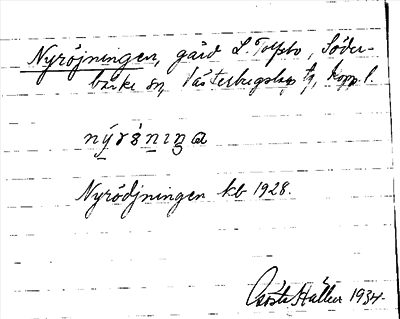 Nyröjningen, gård L. Tolfsbo, Söder-
bärke sn, Västerbergslags tg, Kopp. l.
Nyrödjningen kb 1928.
Gösta Hallur 1934.